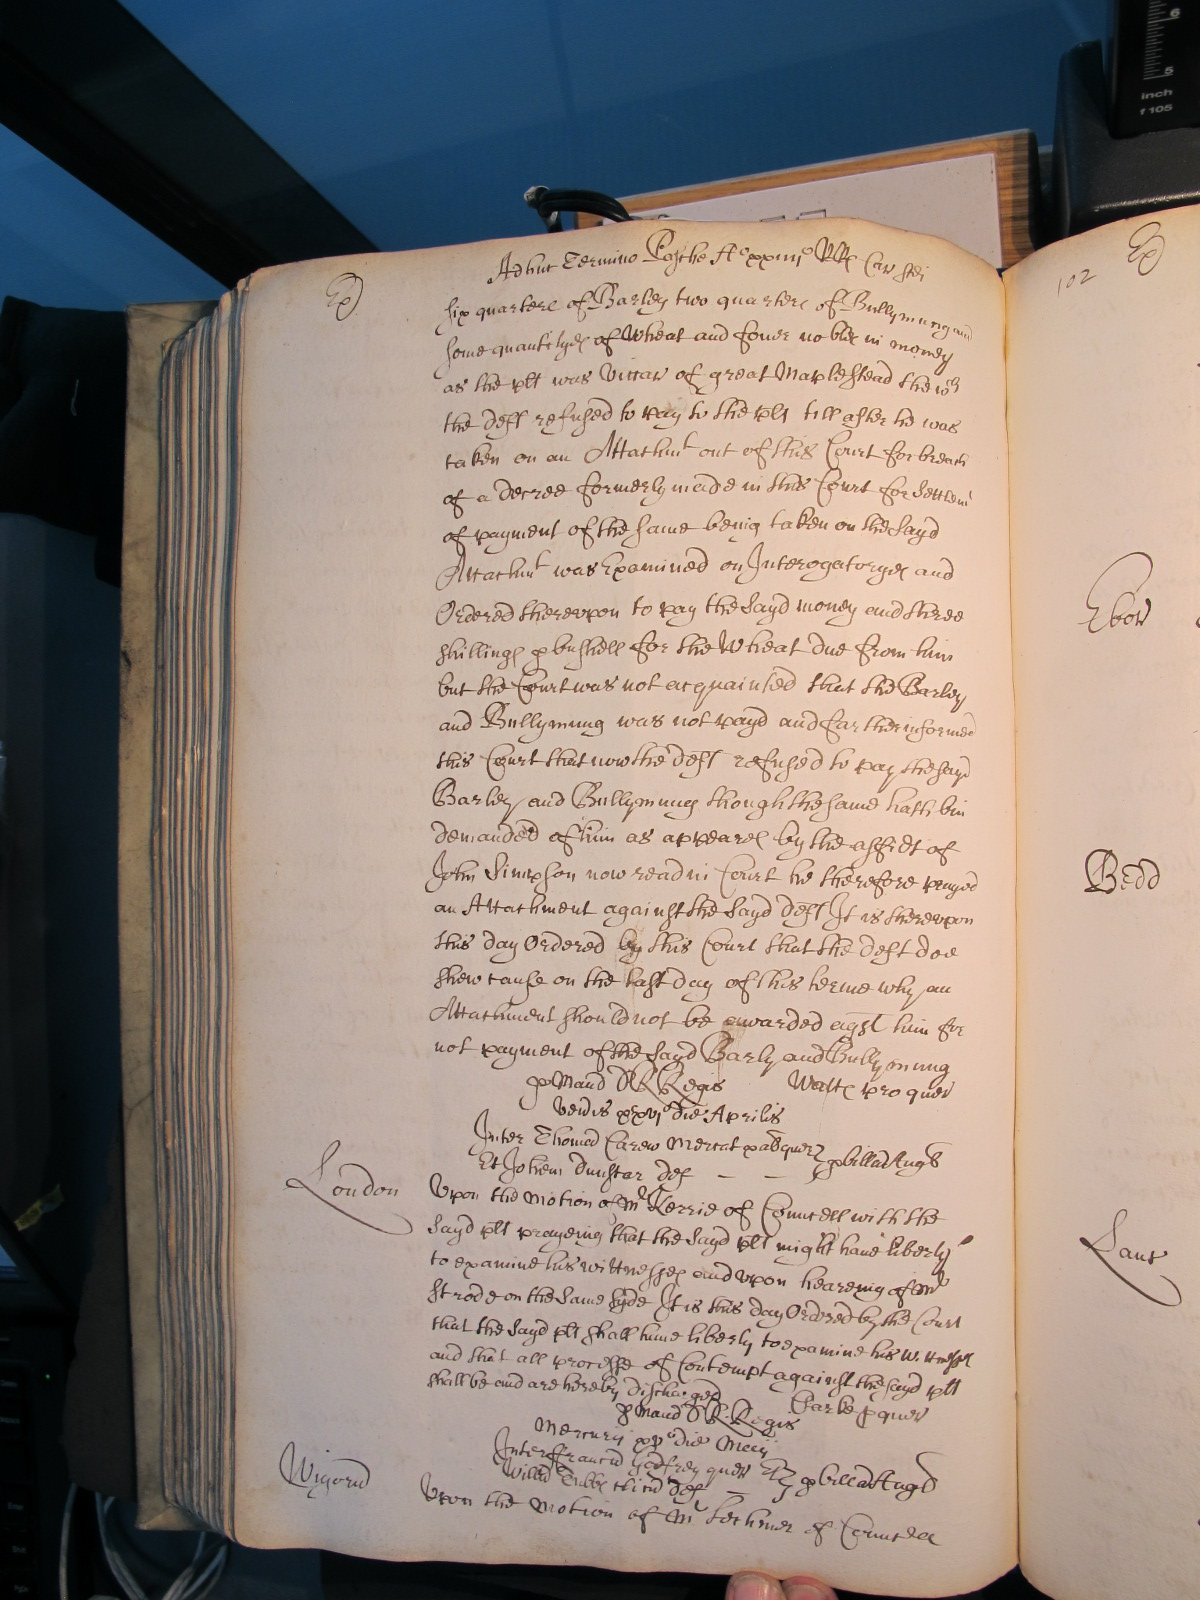 Ex
Adhuc Termino Pasche A° xxiiij° RRs Car Scdi
six quarters of Barley two quarters of Bullymung and
some quantityes of Wheat and fower nobles in money
as the plt was Viccar of great Maplestead the wch
the deft refused to pay to the plt till after he was
taken on an Attachmt out of this Court for breach
of a decree formerly made in this Court for Settlemt
of payment of the same being taken on the Sayd
Attachmt was Examined on Interogatoryes and
Ordered thereupon to pay the Sayd money and three
shillings p bushell for the Wheat due from him
but the Court was not acquainted that the Barley
and Bullymung was not payd and farther informed
this Court that now the deft refused to pay the sayd
Barley and Bullymung though the same hath bin
demanded of him as appeares by the affidt of
John Simpson now read in Court he therefore prayed
an Attachment against the Sayd deft It is thereupon
this day Ordered by this Court that the deft doe
shew cause on the last day of this terme why an
Attachment should not be awarded agst him for
not payment of the Sayd Barly and Bullymung
p Mand RRs Regis Watts pro quer
Ven'is xxvj° die Aprilis
London
Inter Thomam Carew Mercat quer p billam Angl
Et Johem Dunstar def
Upon the motion of Mr Kerrie of Councell with the
Sayd plt praying that the Sayd plt might have liberty
to examine his wittnesses and upon hearing of Mr
Strode on the same syde It is this day Ordered by the Court
that the Sayd plt shall have liberty to examine his Wittnesses
and that all processe of Contempt against the sayd plt
shall be and are hereby discharged Clarke p quer
p Mand RRs Regis
Mercurij xv° die Maij
Wigorn
Inter ffrancm Godfrey quer p billam Angl
Willm Tubbs clicum def
Upon the motion of Mr Lechmer of Councell
102
Ex
Ebor
Bedd
Lanc
6
5
inch
f 105